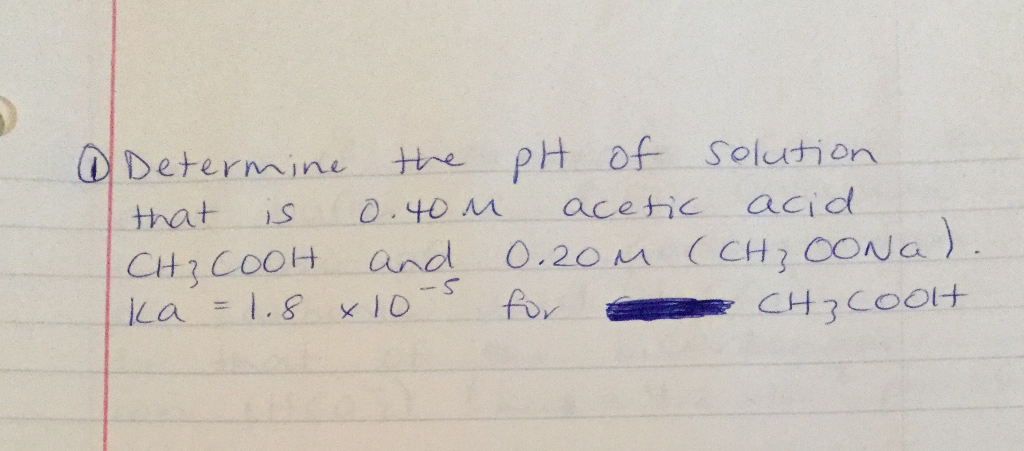 ① Determine the pH of solution
that is 0.40 M acetic acid
CH₃COOH and 0.20 M (CH₃OONa).
Ka = 1.8 x 10⁻⁵ for CH₃COOH